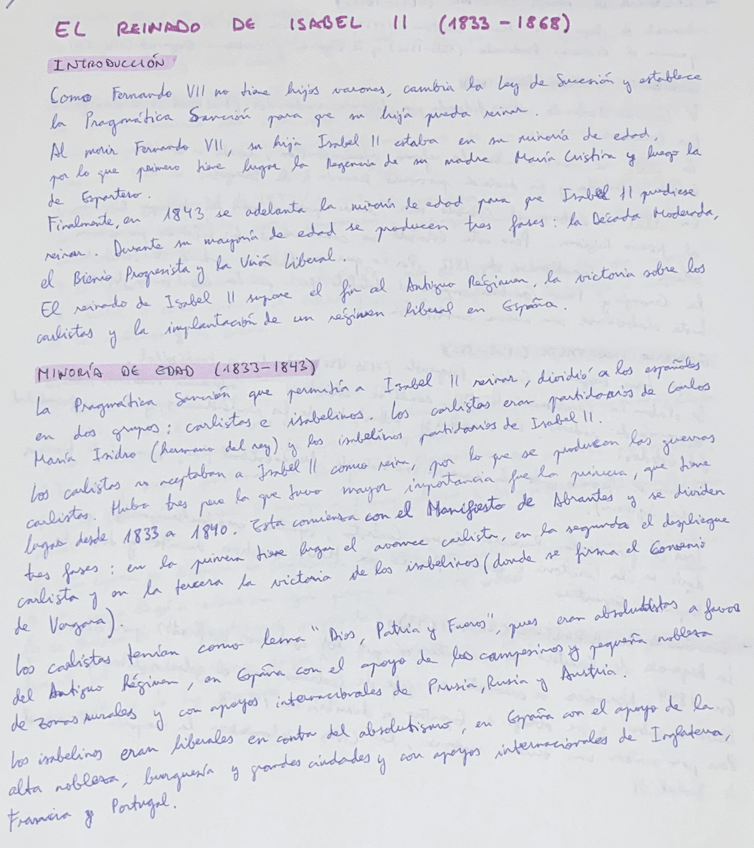 EL REINADO DE ISABEL II (1833-1868)
INTRODUCCIÓN
Como Fernando VII no tiene hijos varones, cambia la Ley de Sucesión y establece
la Pragmática Sanción para que su hija pueda reinar.
Al morir Fernando VII, su hija Isabel II estaba en su minoría de edad,
por lo que primero tiene lugar la Regencia de su madre María Cristina y luego la
de Espartero.
Finalmente, en 1843 se adelanta la minoría de edad para que Isabel II pudiese
reinar. Durante su mayoría de edad se producen tres fases: la Década Moderada,
el Bienio Progresista y la Unión Liberal.
El reinado de Isabel II supone el fin al Antiguo Régimen, la victoria sobre los
carlistas y la implantación de un régimen liberal en España.
MINORÍA DE EDAD (1833-1843)
La Pragmática Sanción que permitía a Isabel II reinar, dividió a los españoles
en dos grupos: carlistas e isabelinos. Los carlistas eran partidarios de Carlos
María Isidro (hermano del rey) y los isabelinos partidarios de Isabel II.
Los carlistas no aceptaban a Isabel II como reina, por lo que se producen las guerras
carlistas. Hubo tres pero la que tuvo mayor importancia fue la primera, que tiene
lugar desde 1833 a 1840. Esta comienza con el Manifiesto de Abrantes y se dividen
tres fases: en la primera tiene lugar el avance carlista, en la segunda el despliegue
carlista y en la tercera la victoria de los isabelinos (donde se firma el Convenio
de Vergara).
Los carlistas tenían como lema "Dios, Patria y Fueros", pues eran absolutistas a favor
del Antiguo Régimen, en España con el apoyo de los campesinos y pequeña nobleza
de zonas rurales y con apoyos internacionales de Prusia, Rusia y Austria.
Los isabelinos eran liberales en contra del absolutismo, en España con el apoyo de la
alta nobleza, burguesía y grandes ciudades y con apoyos internacionales de Inglaterra,
Francia y Portugal.